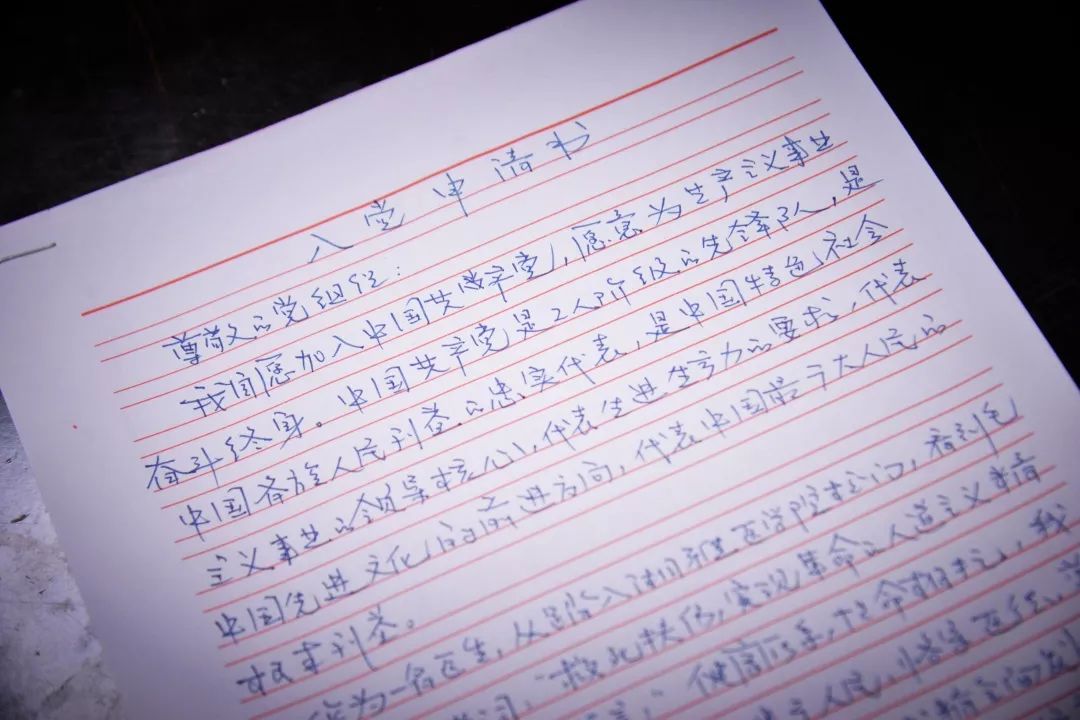 入党申请书
尊敬的党组织:
我自愿加入中国共产党,愿意为共产主义事业
奋斗终身。中国共产党是工人阶级的先锋队,是
中国各族人民利益的忠实代表,是中国特色社会
主义事业的领导核心,代表先进生产力的要求,代表
中国先进文化的前进方向,代表中国最广大人民的
根本利益。
作为一名医生,从踏入医学院校门,看到毛
词:"救死扶伤,实现革命的人道主义
"健康所系,性命相托",我